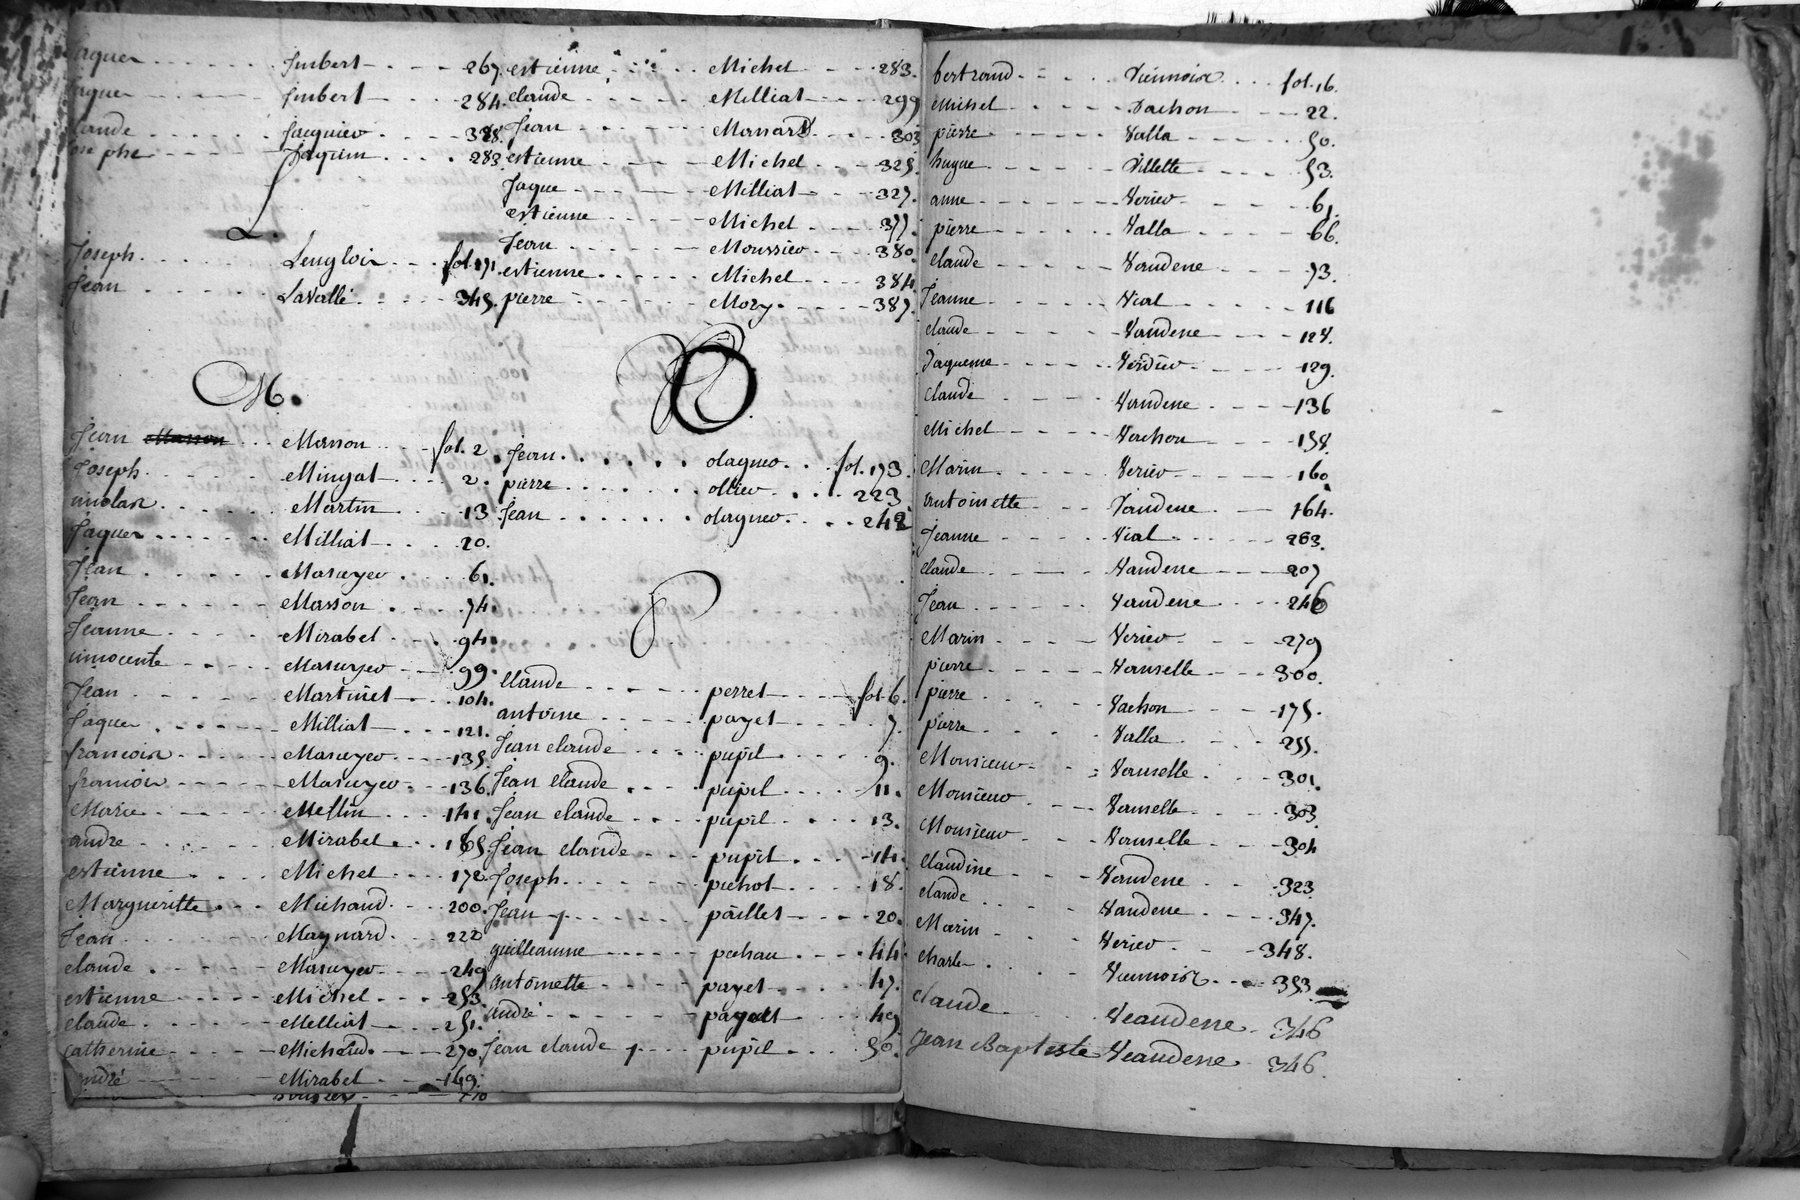 Jaques Jmbert 267.
Jaques Jmbert 284.
claude Jacquier 338.
Josephe Jaquim 283
L.
Joseph Lengloix fol. 171.
Jean LaVallé 345.
M.
Jean Masson fol. 2
Joseph Mingat 2.
nicolas Martin 13
Jaques Milliat 20.
Jean Masuyer 61.
Jean Masson 74.
Jeanne Mirabel 94.
innocente Masuyer 99.
Jean Martinet 104.
Jaques Milliat 121.
francois Masuyer 135.
francois Masuyer 136.
Marie Mellin 141.
andre Mirabel 165
estienne Michel 172
Margueritte Michaud 200.
Jean Maynard 220
claude Masuyer 249
estienne Michel 253.
claude Melliat 251.
catherine Michaud 270.
andré Mirabel 169.
estienne Michel 283.
claude Milliat 299
Jean Manard 303
estienne Michel 325.
Jaque Milliat 327.
estienne Michel 377.
Jean Moussier 380.
estienne Michel 384
pierre Mozy 387.
O
Jean olagner fol. 173.
pierre ollier 223
Jean olagner 242
P
Claude perret fol. 6.
antoine payet 7.
Jean claude pupil 9.
Jean claude pupil 11.
Jean claude pupil 13.
Jean claude pupil 14.
Joseph pichot 18.
Jean paillet 20.
guilleaume pachau 44.
antoinette payet 47.
andré payet 49
Jean claude pupil 50.
bertrand Viennoix fol. 16.
Michel Vachon 22.
pierre Valla 50.
hugue Villette 53.
anne Verier 61.
pierre Valla 66.
claude Vandene 73.
Jeanne Vial 116
claude Vandene 124.
Jaqueme Verdier 129.
Claude Vandene 136
Michel Vachon 158.
Marin Verier 160
antoinette Vandene 164.
Jeanne Vial 263.
claude Vandene 207
Jean Vandene 246
Marin Verier 279
pierre Vauselle 300.
pierre Vachon 175.
pierre Valla 255.
Monsieur Vauselle 301.
Monsieur Vauselle 303
Monsieur Vauselle 304
Claudine Vandene 323
claude Vandene 347.
Marin Verier 348.
charle Viennoix 353
claude Veaudene 346
Jean Baptiste Veaudene 346.